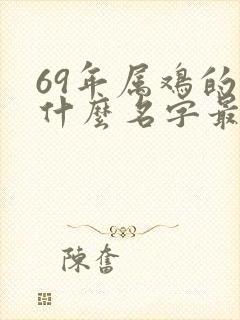 69年属鸡的
什麼名字最
陳奮